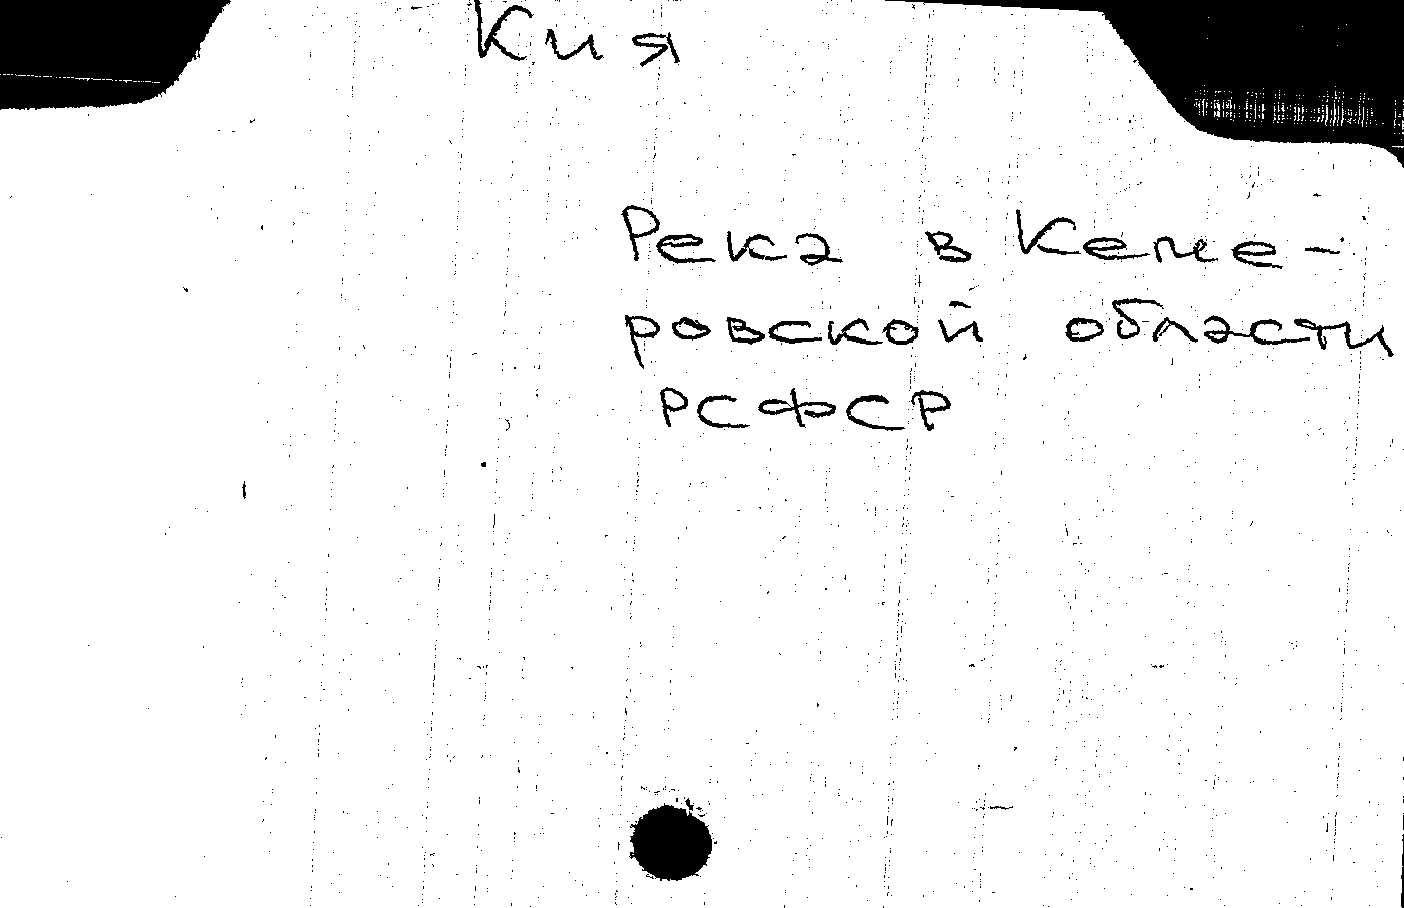 Кия
Река в Кеме-
ровской области
РСФСР